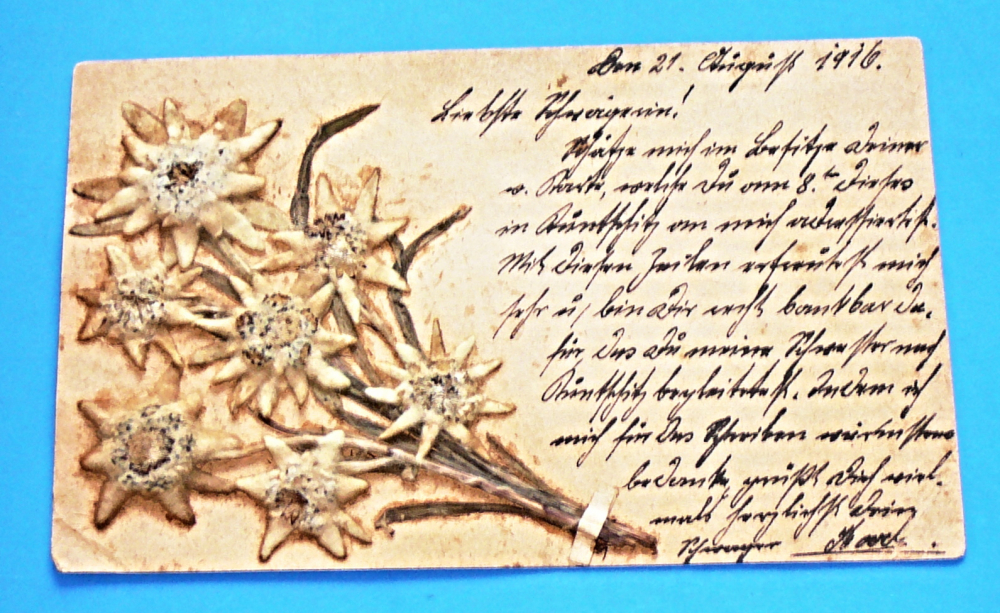 Den 21. August 1916.
Liebste Schwägerin!
Schätze mich im Besitze Deiner
w. Karte, welche Du am 8.ten Dieses
in Kuntschitz an mich adressiertest.
Mit Diesen Zeilen erfreutest mich
sehr u, bin Dir recht dankbar da-
für das Du meine Schwester nach
Kuntschitz begleitetest. Indem ich
mich für das Schreiben wärmstens
bedanke, grüßt Dich viel-
mals herzlichst Dein
Schwager Karl.